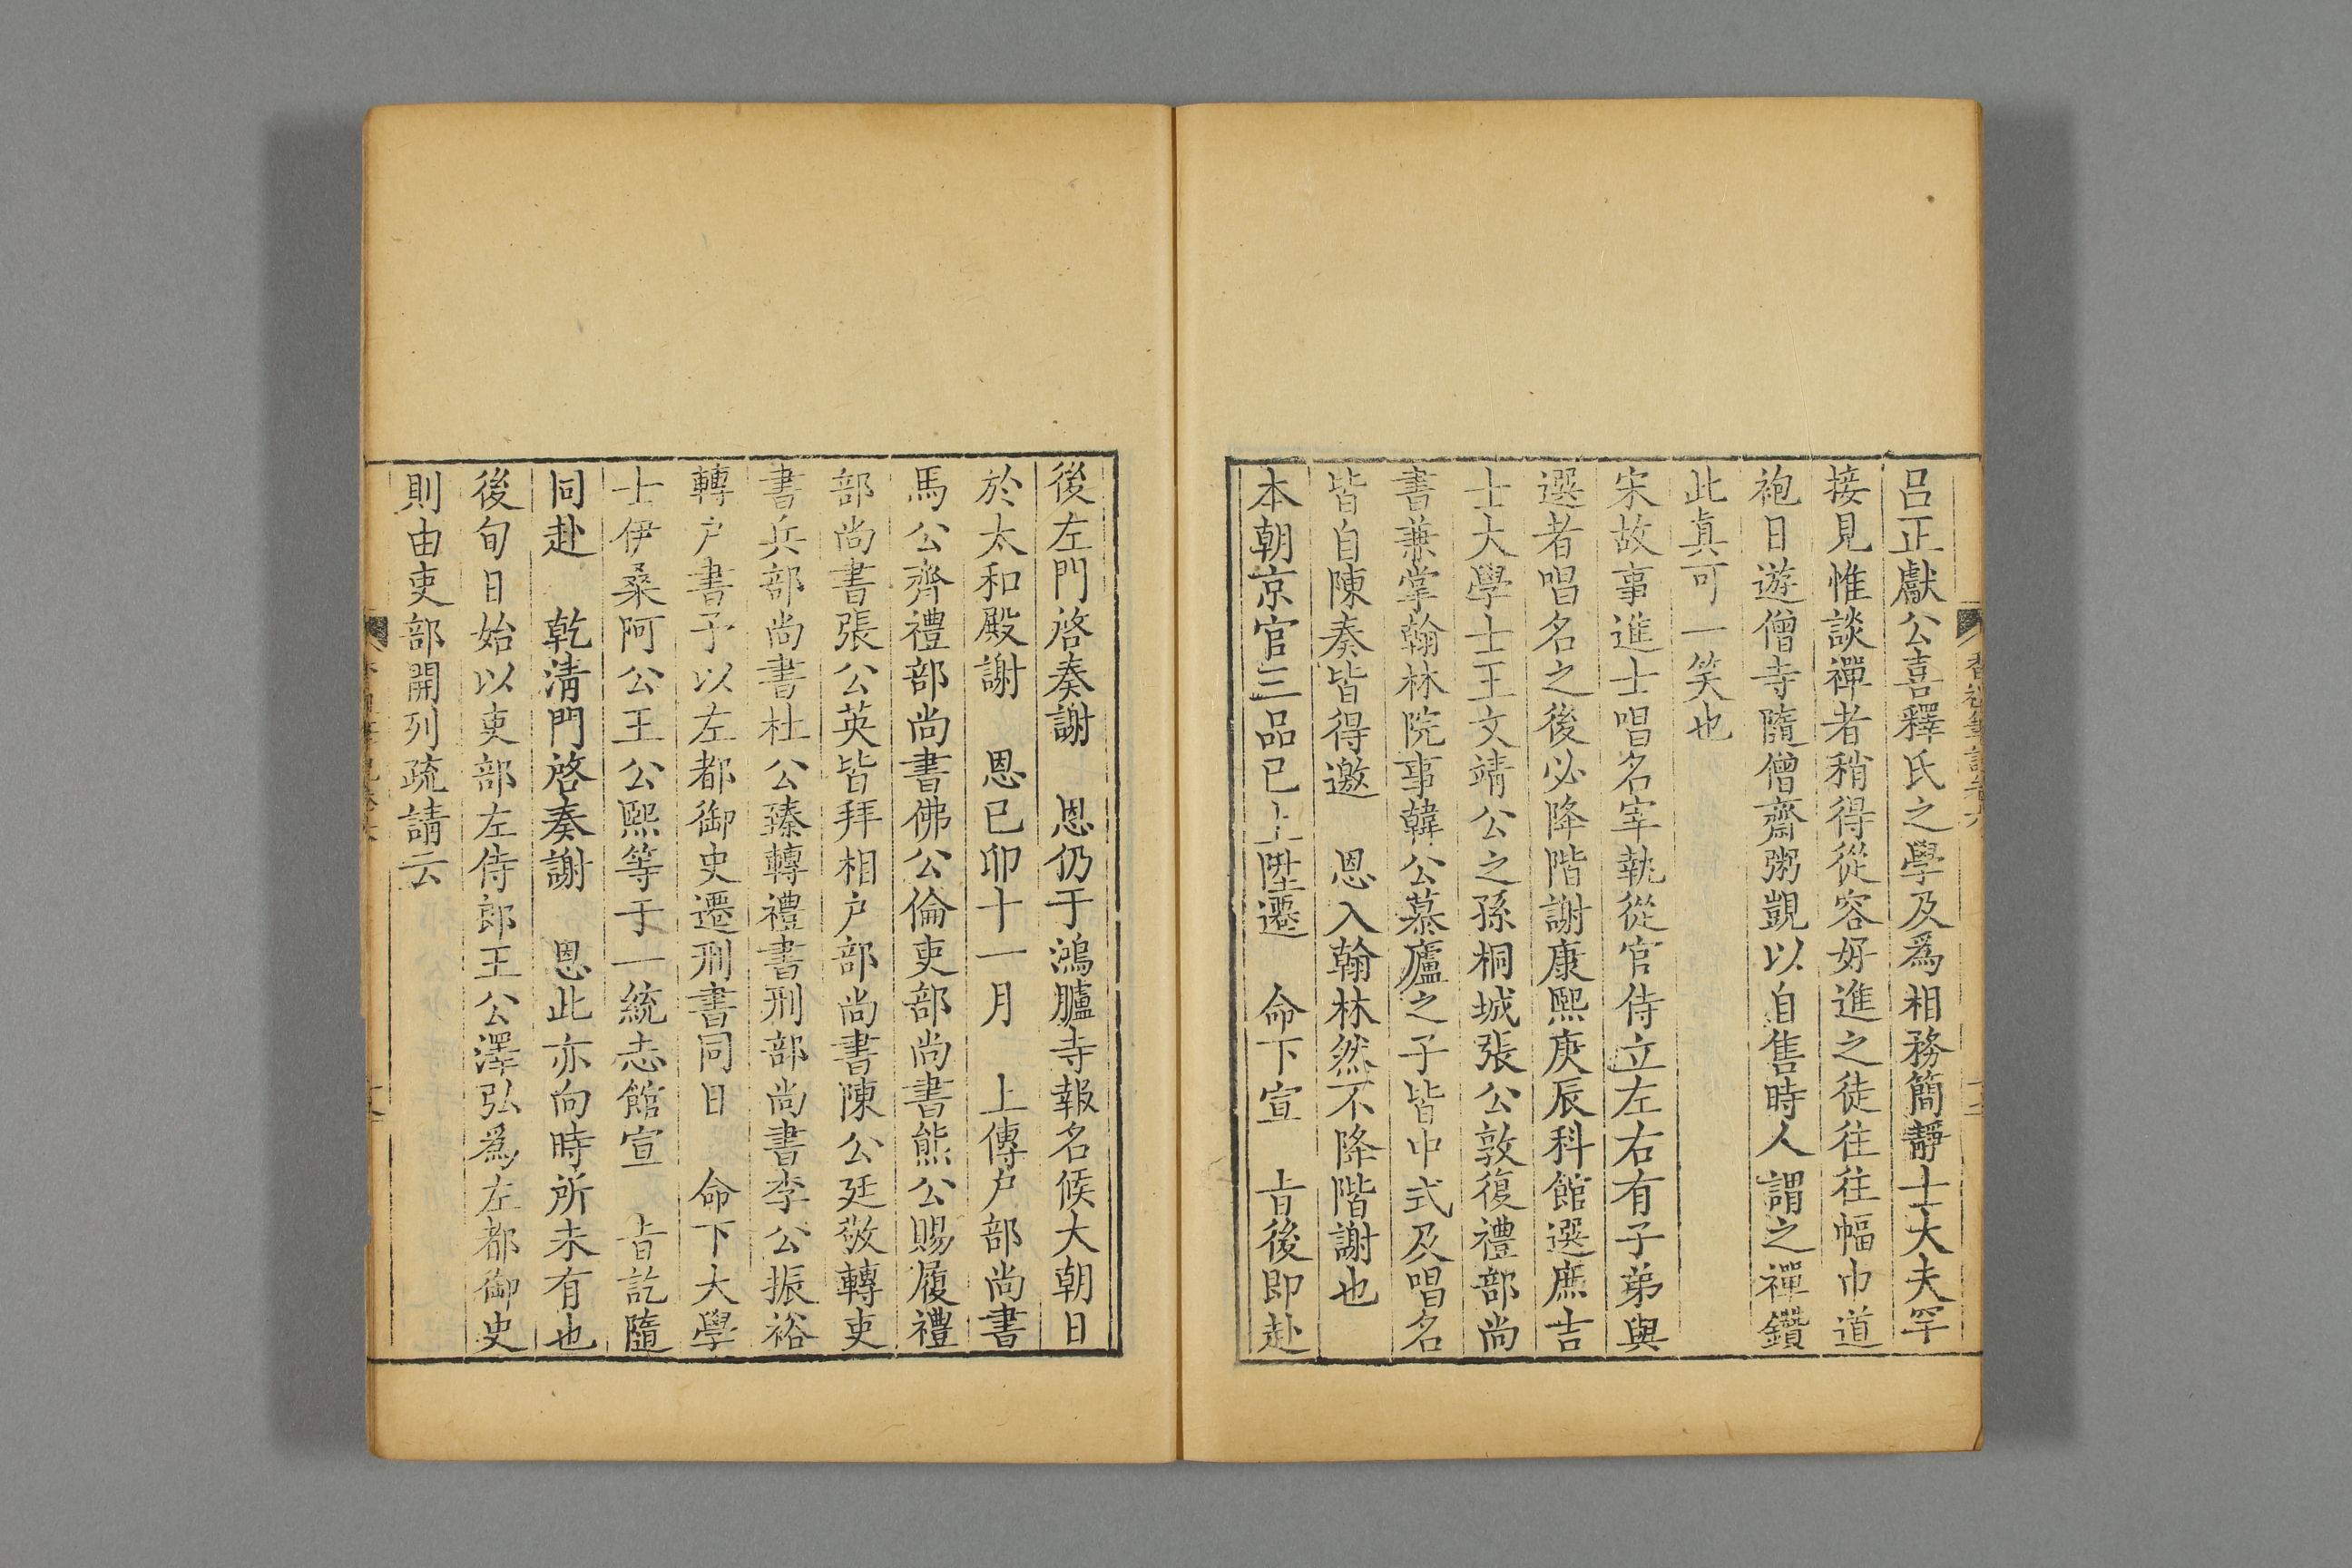 呂正獻公喜釋氏之學及爲相務簡靜士大夫罕
接見惟談禪者稍得從容好進之徒往往幅巾道
袍日遊僧寺隨僧齋粥覬以自售時人謂之禪鑽
此真可一笑也
宋故事進士唱名宰執從官侍立左右有子弟與
選者唱名之後必降階謝康熙庚辰科館選庶吉
士大學士王文靖公之孫桐城張公敦復禮部尚
書兼掌翰林院事韓公慕廬之子皆中式及唱名
皆自陳奏皆得邀 恩入翰林然不降階謝也
本朝京官三品已上陞遷 命下宣 㫖後即赴
後左門啓奏謝 恩仍于鴻臚寺報名候大朝日
於太和殿謝 恩已卯十一月 上傳户部尚書
馬公齊禮部尚書佛公倫吏部尚書熊公賜履禮
部尚書張公英皆拜相户部尚書陳公廷敬轉吏
書兵部尚書杜公臻轉禮書刑部尚書李公振裕
轉户書予以左都御史遷刑書同日 命下大學
士伊桑阿公王公熙等于一統志館宣 㫖訖隨
同赴 乾清門啓奏謝 恩此亦向時所未有也
後旬日始以吏部左侍郎王公澤弘爲左都御史
則由吏部開列疏請云